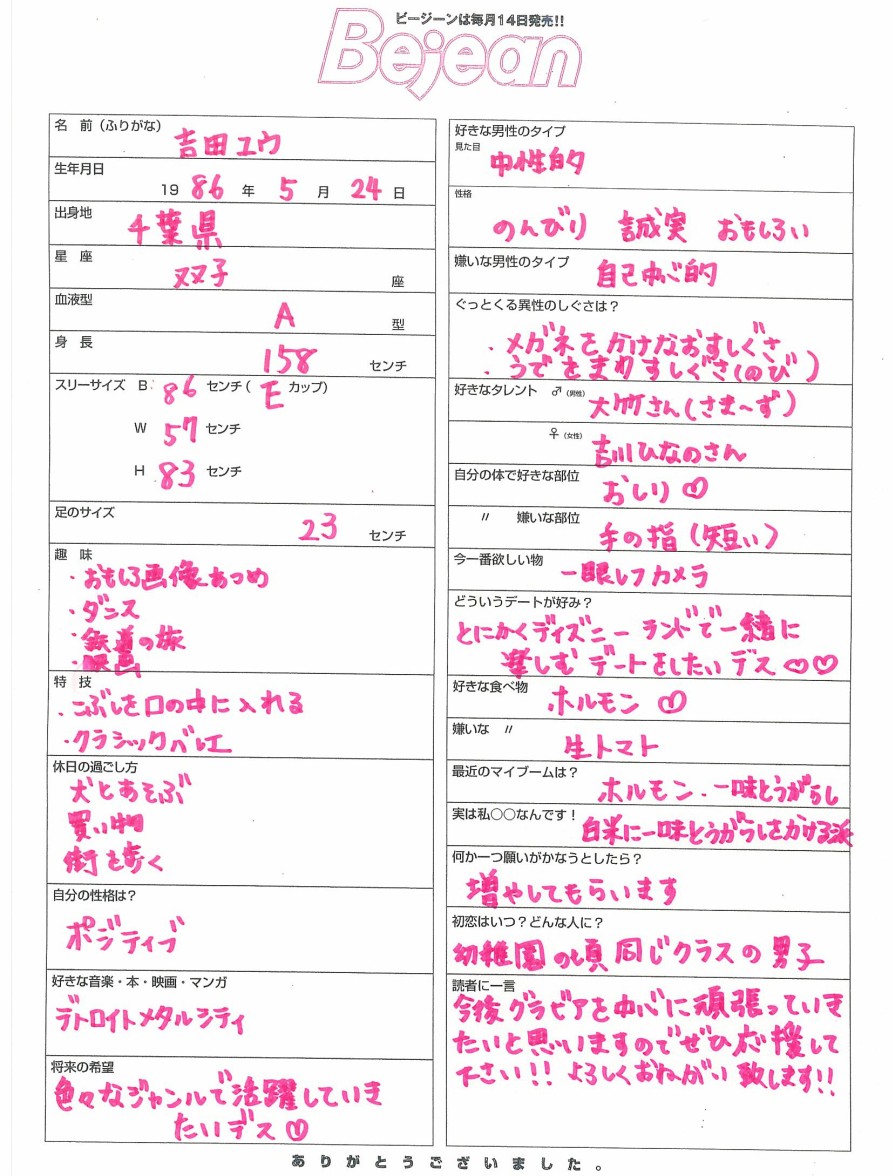 ビージーンは毎月14日発売!!
Bejean
名 前（ふりがな）
吉田ユウ
生年月日
19 86 年 5 月 24 日
出身地
千葉県
星 座
双子 座
血液型
A 型
身 長
158 センチ
スリーサイズ B 86 センチ( E カップ)
W 57 センチ
H 83 センチ
足のサイズ
23 センチ
趣 味
・おもしろ画像あつめ
・ダンス
・鉄道の旅
・映画
特 技
・こぶしを口の中に入れる
・クラシックバレエ
休日の過ごし方
犬とあそぶ
買い物
街を歩く
自分の性格は？
ポジティブ
好きな音楽・本・映画・マンガ
デトロイトメタルシティ
将来の希望
色々なジャンルで活躍していき
たいデス♡
好きな男性のタイプ
見た目
中性的
性格
のんびり 誠実 おもしろい
嫌いな男性のタイプ
自己中心的
ぐっとくる異性のしぐさは？
・メガネをかけなおすしぐさ
・うでをまわすしぐさ(のび)
好きなタレント ♂（男性） 大竹さん(さま～ず)
♀（女性） 吉川ひなのさん
自分の体で好きな部位
おしり♡
〃 嫌いな部位
手の指(短い)
今一番欲しい物
一眼レフカメラ
どういうデートが好み？
とにかくディズニーランドで一緒に
楽しむデートをしたいデス♡♡
好きな食べ物
ホルモン♡
嫌いな 〃
生トマト
最近のマイブームは？
ホルモン・一味とうがらし
実は私○○なんです！
白米に一味とうがらしをかける派
何か一つ願いがかなうとしたら？
増やしてもらいます
初恋はいつ？どんな人に？
幼稚園の頃同じクラスの男子
読者に一言
今後グラビアを中心に頑張っていき
たいと思いますのでぜひ応援して
下さい!! よろしくおねがい致します!!
ありがとうございました。